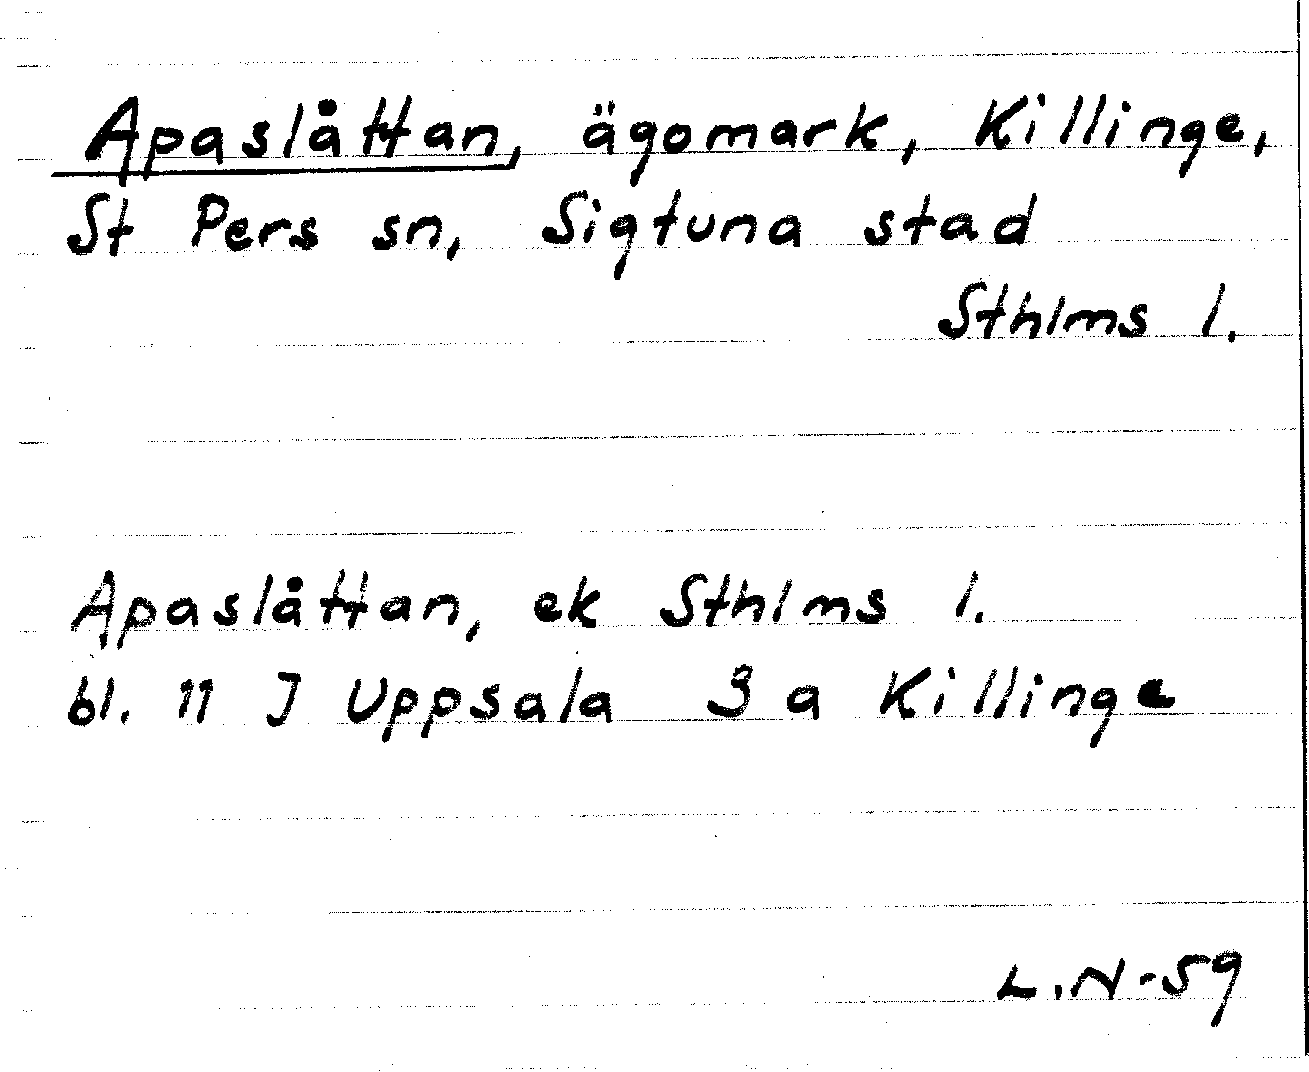 Apaslåttan, ägomark, Killinge,
St Pers sn, Sigtuna stad
Sthlms l.
Apaslåttan, ek Sthlms l.
bl. 11 J Uppsala 3 a Killinge
L.N-59